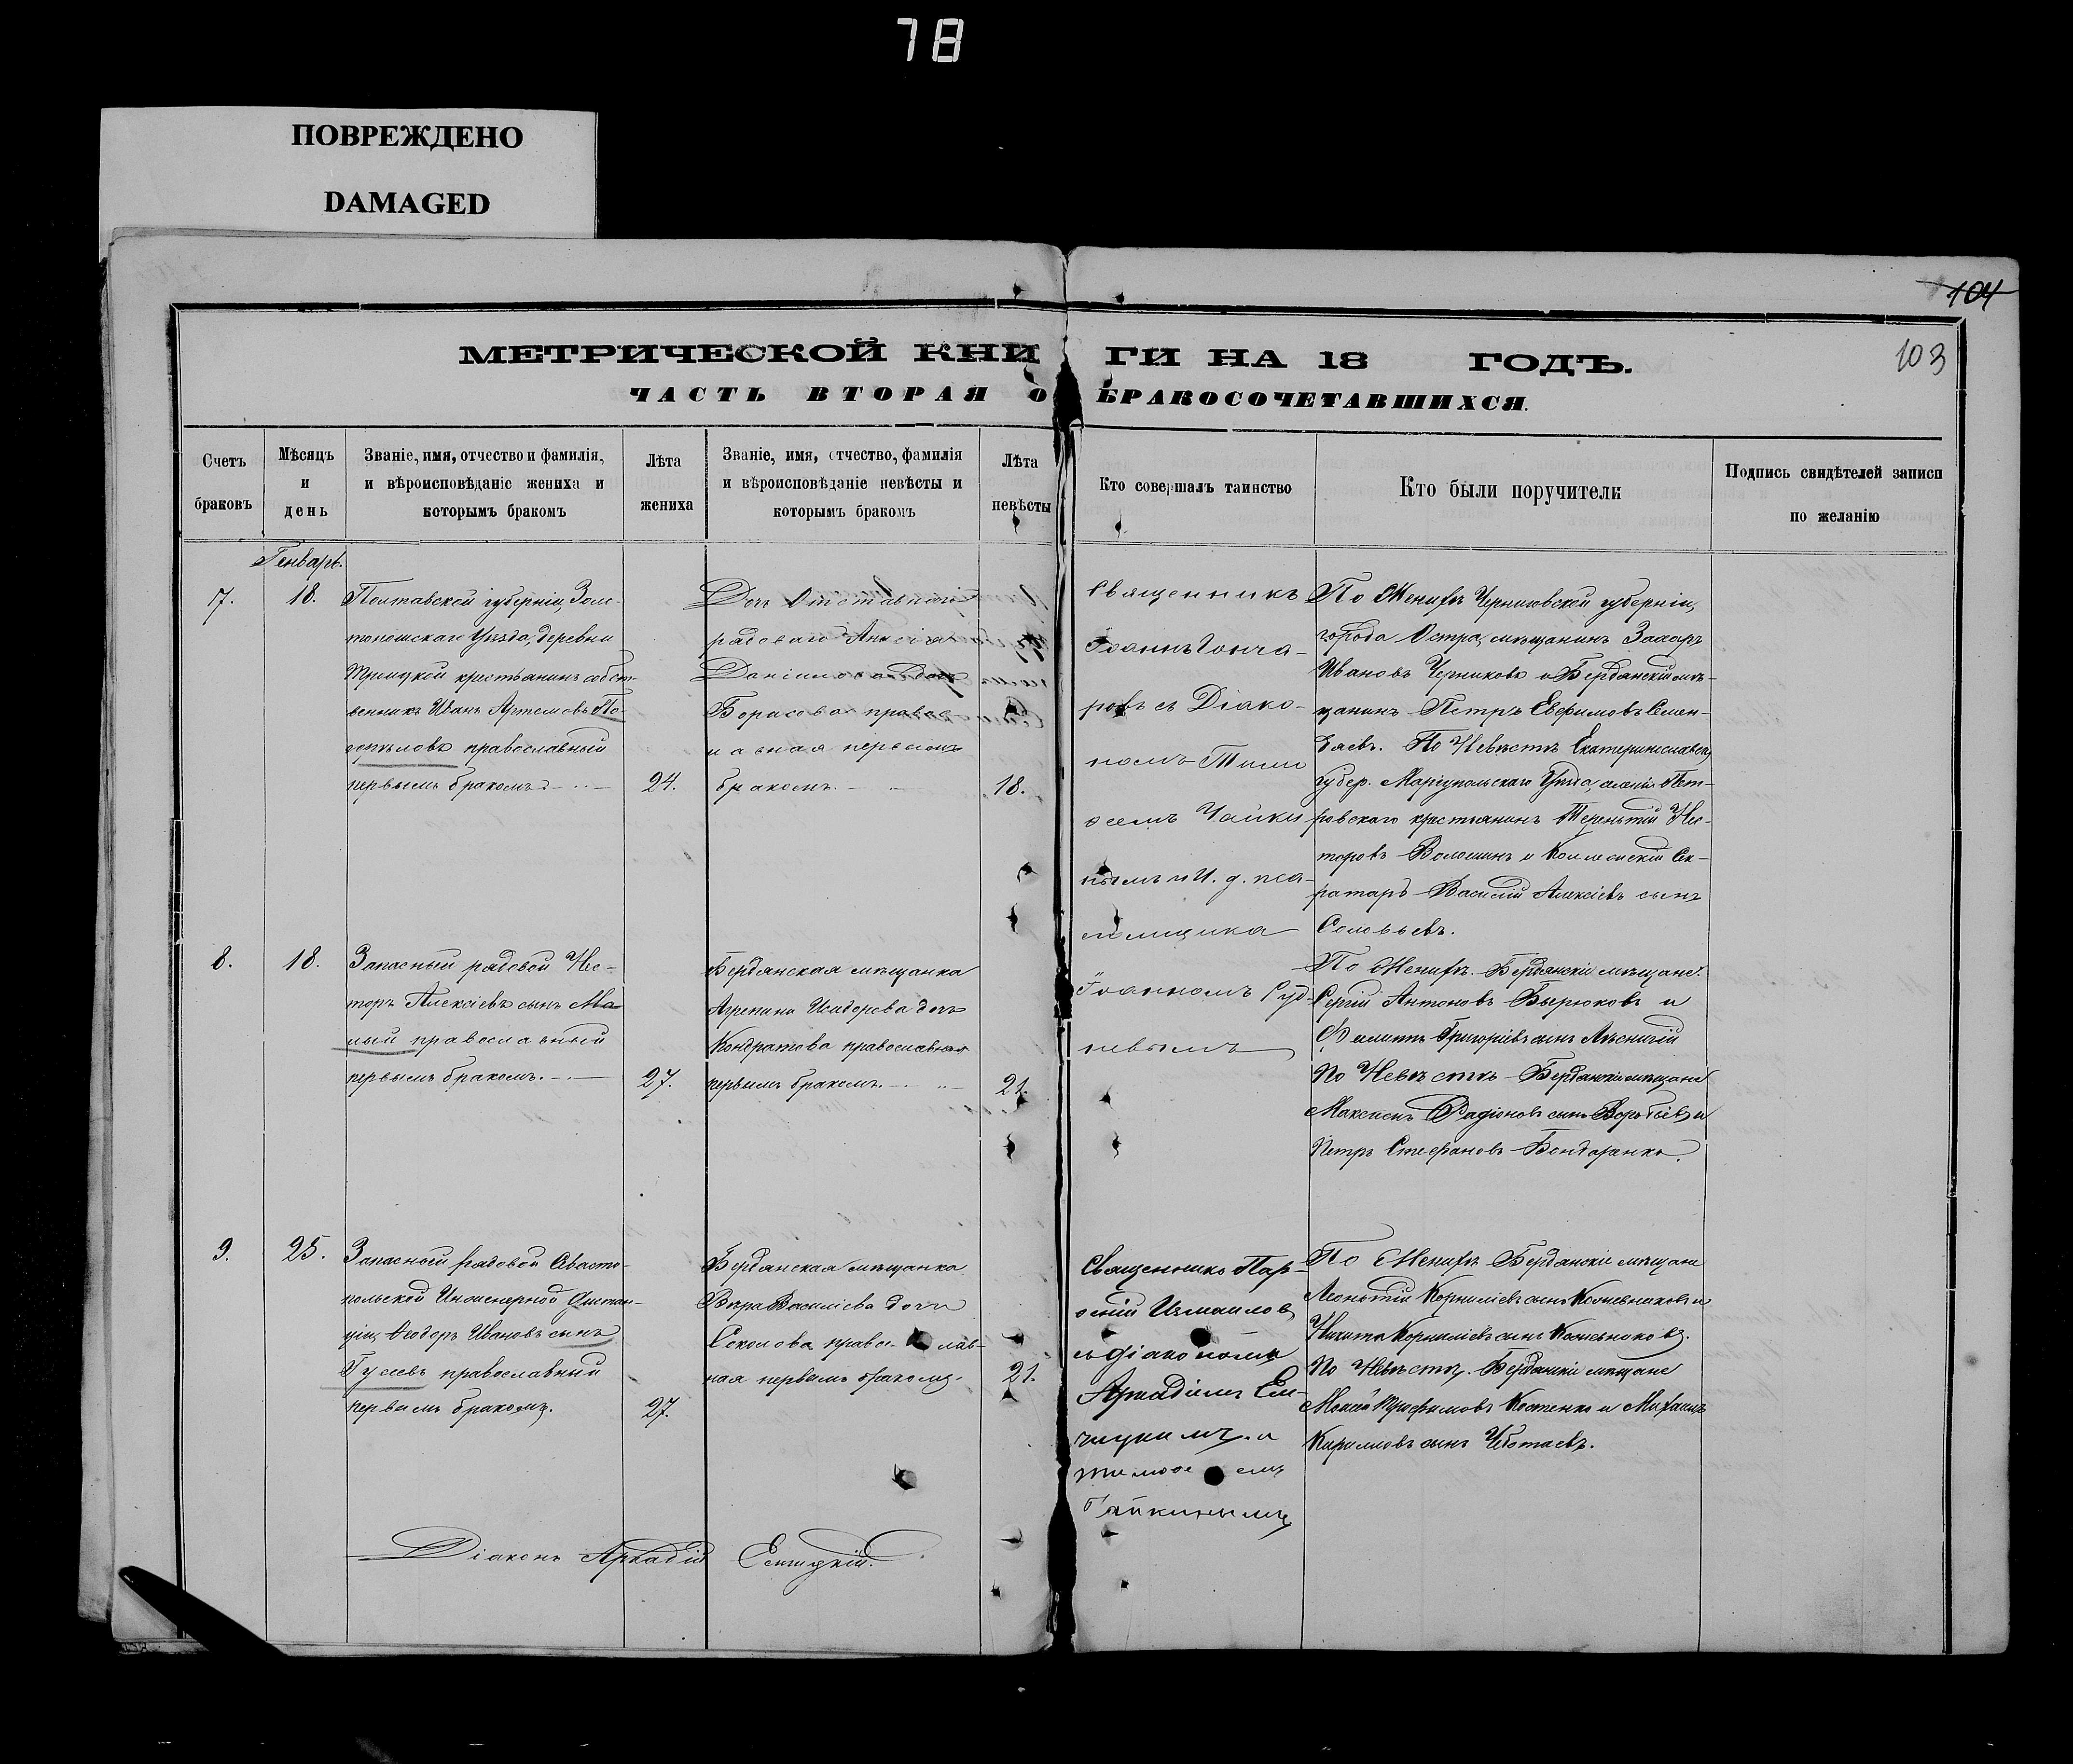 78
ПОВРЕЖДЕНО
DAMAGED
104
103
МЕТРИЧЕСКОЙ КНИГИ НА 18 ГОДЪ.
ЧАСТЬ ВТОРАЯ О БРАКОСОЧЕТАВШИХСЯ.
Счетъ
браковъ
Мѣсяцъ
и
день
Званіе, имя, отчество и фамилія,
и вѣроисповѣданіе жениха и
которымъ бракомъ
Лѣта
жениха
Званіе, имя, отчество, фамилія
и вѣроисповѣданіе невѣсты и
которымъ бракомъ
Лѣта
невѣсты
Кто совершалъ таинство
Кто были поручители
Подпись свидѣтелей записи
по желанію
Генварь.
7.
18.
Полтавской губерніи, Золо-
тоношскаго Уѣзда, деревни
крестьянинъ собст-
венникъ Иванъ Артемовъ По-
православный
первымъ бракомъ
24.
Дочь Отставнаго
рядоваго Анисія
Даніилова
Борисова правос-
лавная первымъ
бракомъ.
18.
Священникъ
Іоаннъ Гонча-
ровъ съ Діако-
номъ Тимо
ѳеемъ Чайки
нымъ и И. д. пса-
ломщика
Іоанномъ Руд-
невымъ
По Женихѣ Черниговской губерніи,
города Остра, мѣщанинъ Захаръ
Ивановъ Черниковъ и Бердянскій мѣ-
щанинъ Петръ Евфимовъ Семен-
дяевъ. По Невѣстѣ Екатеринославской
губер. Маріупольскаго Уѣзда, селенія Пет-
ровскаго крестьянинъ Терентій Нес-
торовъ Волошинъ и Коллежскій Сек-
ратарь Василій Алексіевъ сынъ
Соловьевъ.
8.
18.
Запасный рядовой Нес-
торъ Алексіевъ сынъ Ма-
лый православный
первымъ бракомъ.
27.
Бердянская мѣщанка
Агрепина Исидорева дочь
Кондратова православная
первымъ бракомъ.
21.
По Женихѣ. Бердянскіе мѣщане.
Сергій Антоновъ Бырюковъ и
Филиппъ Григоріевъ сынъ
По Невѣстѣ Бердянскіе мѣщане
Максимъ Радіоновъ сынъ Воробіевъ и
Петръ Стефановъ Бондаренко.
9.
25.
Запасной рядовой Севасто-
польской Инженерной Дистан-
ціи, Ѳеодоръ Ивановъ сынъ
Гусевъ православный
первымъ бракомъ.
27.
Бердянская мѣщанка
Вѣра Василіева дочь
Соколова правос-лав-
ная первымъ бракомъ.
21.
Священникъ Пар-
ѳеній Измаиловъ
съ діакономъ
Аркадіемъ Ел-
и
Тимоѳеемъ
Чайкинымъ
По Женихѣ Бердянскіе мѣщане
Леонтій Корниліевъ сынъ Кожевниковъ и
Никита Корниліевъ сынъ Кожевниковъ.
По Невѣстѣ. Бердянскіе мѣщане
Моисей Трофимовъ Костенко и Михаилъ
Кирилловъ сынъ
Діаконъ Аркадій